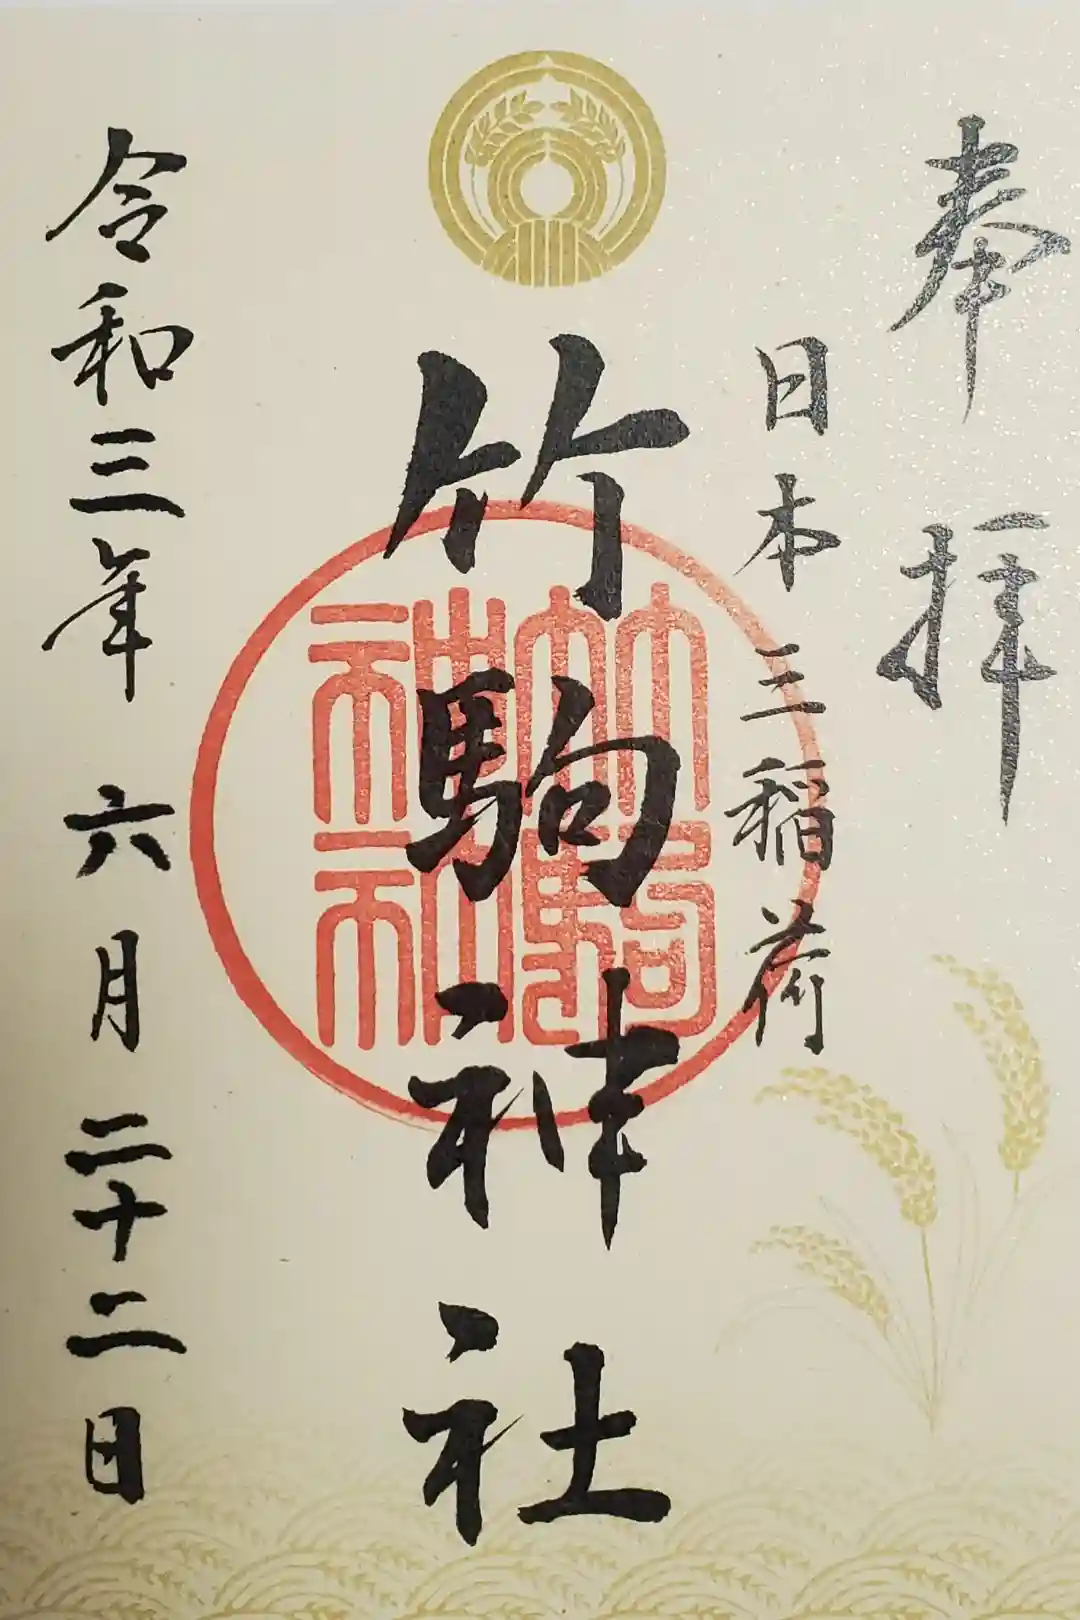 奉拝
日本三稲荷
竹駒神社
竹駒神社
令和三年 六月二十二日